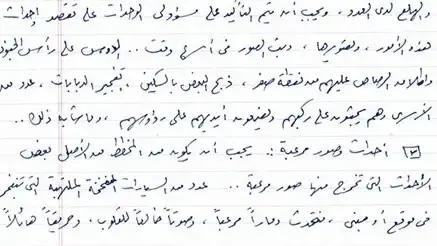 والهلع لدى العدو ، ويجب أن يتم التأكيد على مسؤولي الوحدات على تقصد إحداث
هذه الأمور ، وتصويرها ، وبث الصور في أسرع وقت .. الدوس على رأس الجنود
وإطلاق الرصاص عليهم من نقطة صفر ، ذبح البعض بالسكين ، تفجير الدبابات ، عدد من
الأسرى وهم يجثون على ركبهم ويضعون أيديهم على رؤوسهم ، وما شابه ذلك ..
أحداث وصور مرعبة :. يجب أن يكون من المخطط من الأصل بعض
الأحداث التي تخرج منها صور مرعبة .. عدد من السيارات المفخخة الملتهبة التي تنفجر
في موقع أو مبنى ، فتحدث دماراً مرعباً ، وصوتاً خالعاً للقلوب ، وحريقاً هائلاً